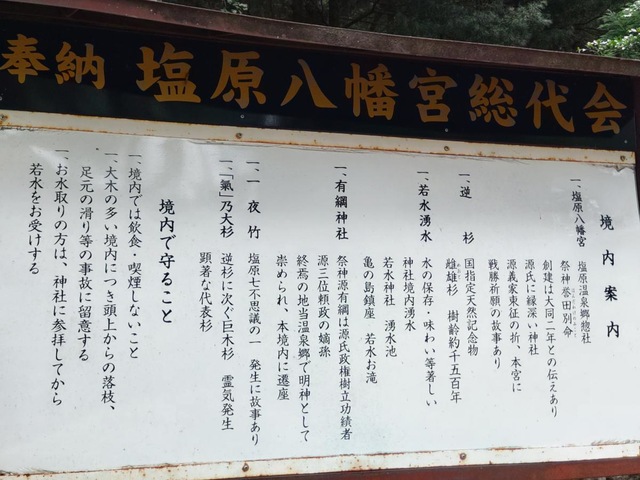 奉納 塩原八幡宮総代会
境内案内
一、塩原八幡宮 塩原温泉郷惣社
祭神誉田別命
創建は大同二年との伝えあり
源氏に縁深い神社
源義家東征の折、本宮に
戦勝祈願の故事あり
一、逆杉 国指定天然記念物
雌雄杉 樹齢約千五百年
一、若水湧水 水の保存・味わい等著しい
神社境内湧水
若水神社 湧水池
亀の島鎮座 若水お滝
一、有綱神社 祭神源有綱は源氏政権樹立功績者
源三位頼政の嫡孫
終焉の地当温泉郷で明神として
崇められ、本境内に遷座
一、一夜竹 塩原七不思議の一 発生に故事あり
一、「氣」乃大杉 逆杉に次ぐ巨木杉 霊気発生
顕著な代表杉
境内で守ること
一、境内では飲食・喫煙しないこと
一、大木の多い境内につき頭上からの落枝、
足元の滑り等の事故に留意する
一、お水取りの方は、神社に参拝してから
若水をお受けする